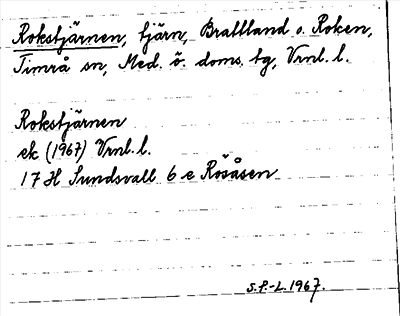 Rokstjärnen, tjärn, Brattland o. Roken,
Timrå sn, Med. ö. doms. tg, Vrnl. l.
Rokstjärnen
ek (1967) Vrnl. l.
17 H Sundsvall 6 e Rösåsen
S.F.-L. 1967.